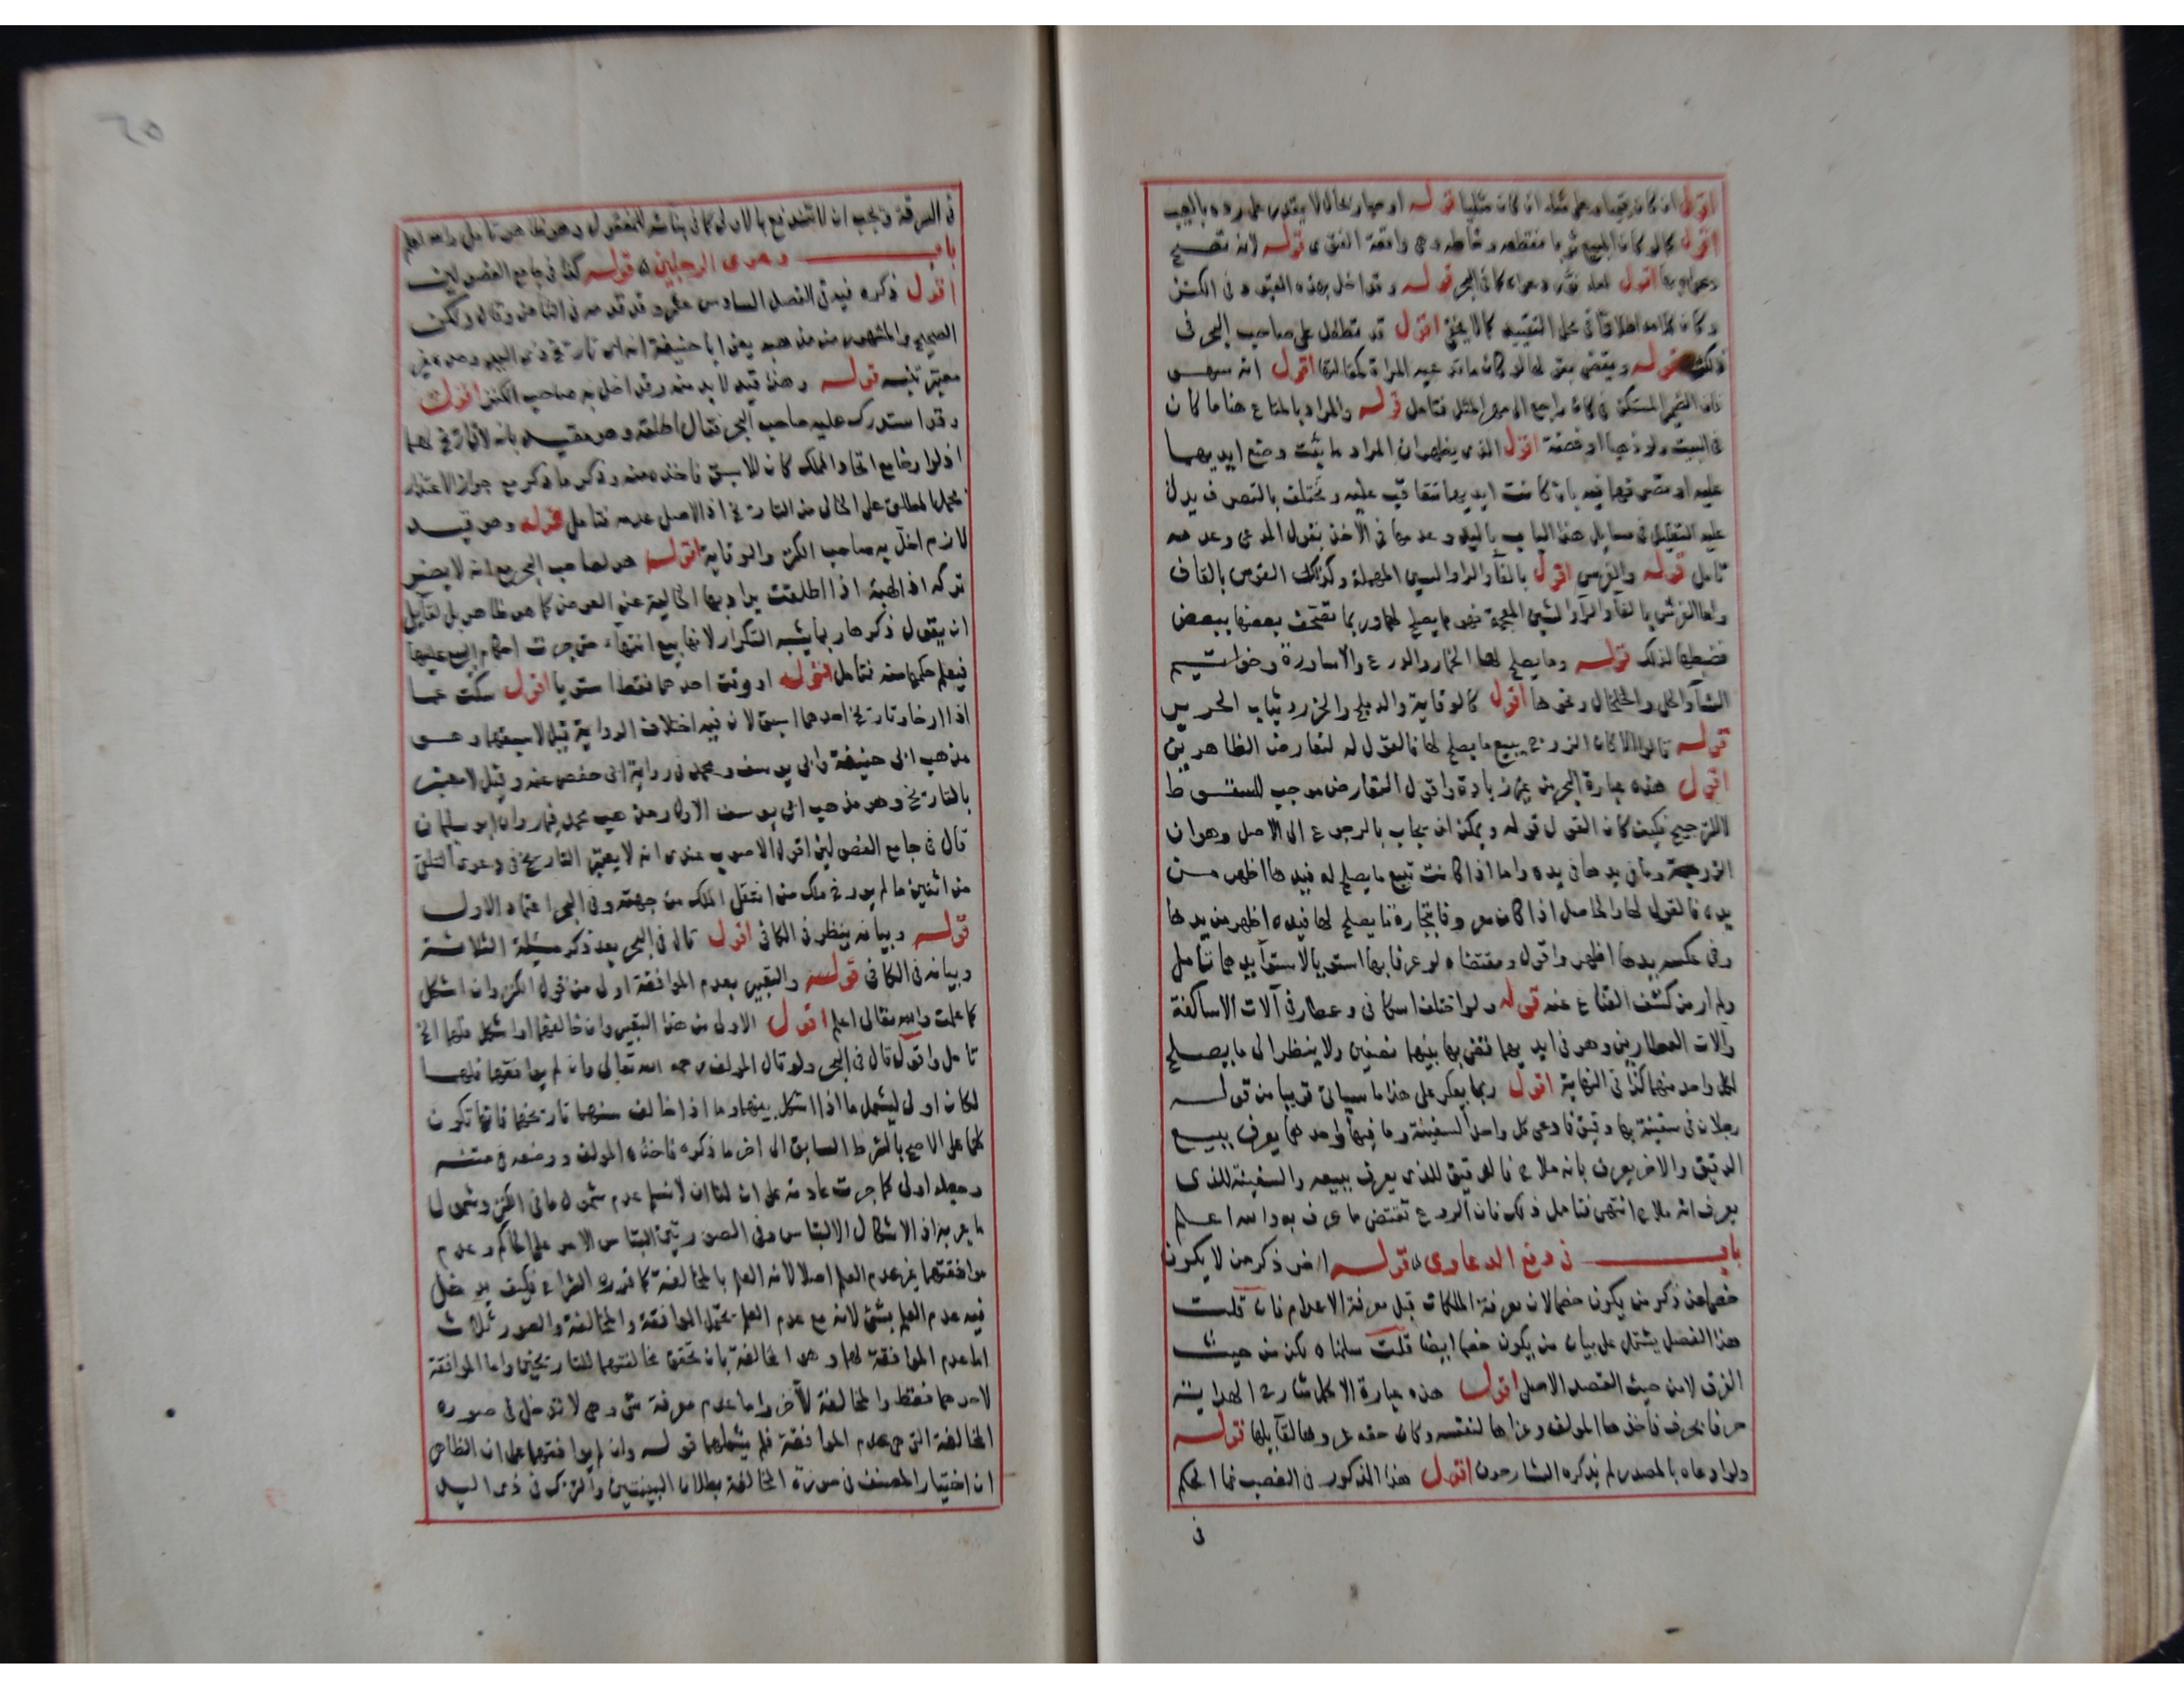 اقول ان كان قيميا وعلى مثله ان كان مثليا قوله او صار بحال لا يقدر على رده بالعيب
اقول كما لو كان المبيع ثوبا فقطعه وخاطه وهي واقعة الفتوى قوله لانه تصح
اقول لعله فيه دعواه كما في البحر قوله وقد اخل بهذه القيود في الكنز
وكان كلامه اطلاقا في محل التقييد كما لا يخفى اقول قد تطفل على صاحب البحر في
ذلك قوله ويقضى بقولها لو كان ما تدعيه المراة كمقالتها اقول انه سهو
فان الضمير المستكن في كان راجع الى مهر المثل فتامل قوله والمراد بالمتاع هنا ما كان
في البيت ولو ذهبا او فضة اقول الذي يظهر ان المراد ما يثبت وضع ايديهما
عليه او تصرفهما فيه بان كانت ايديهما تتعاقب عليه وتختلف بالتصرف يدل
عليه التعليل في مسايل هذا الباب باليد وعدمها في الاخذ بقول المدعي وعدمه
تامل قوله والفرس اقول بالفآ والرا والسين المهملة وكذلك القوس بالقاف
واما الفرش بالفآ والرآ والشين المعجمة فهو مما يصلح لهما وربما تصحف بعضها ببعض
فضبطها لذلك قوله وما يصلح لها الخمار والدرع والاساورة وخواتيم
النسآ والحلى والخلخال ونحوها اقول كالوقاية والدملج والخز وثياب الحرير
قوله قالوا الا اذا كان الزوج يبيع ما يصلح لها فالقول له لتعارض الظاهرين
اقول هذه عبارة البحر من غير زيادة واقول التعارض موجب للسقوط
لا للترجيح فكيف كان القول قوله ويمكن ان يجاب بالرجوع الى الاصل وهو ان
الزوجة وما في يدها في يده واما اذا كانت تبيع ما يصلح له فيدها اظهر من
يده فالقول لها والحاصل اذا كان معروفا بتجارة ما يصلح لها فيده اظهر من يدها
وفي عكسه يدها اظهر واقول ومقتضاه لو عرفا بها استويا لاستوآ يدهما فتامل
ولم ار من كشف القناع عنه قوله ولو اختلف اسكافي وعطار في آلات الاساكفة
وآلات العطارين وهو في ايديهما قضي بها بينهما نصفين ولا ينظر الى ما يصلح
لكل واحد منهما كذا في النهاية اقول ربما يعكر على هذا ما سياتي قريبا من قوله
رجلان في سفينة بها دقيق فادعى كل واحد السفينة وما فيها واحدهما يعرف ببيع
الدقيق والاخر يعرف بانه ملاح فالدقيق للذي يعرف ببيعه والسفينة للذي
يعرف انه ملاح انتهى فتامل ذلك فان الفروع تقتضي ما عرف به والله اعلم
باب في دفع الدعاوى قوله اخر ذكر من لا يكون
خصما عن ذكر من يكون خصما لان معرفة الملكات قبل معرفة الاعدام فان قلت
هذا الفصل يشتمل على بيان من يكون خصما ايضا قلت سلمناه لكن من حيث
الفرق لا من حيث القصد الاصلي اقول هذه عبارة الاكمل شارح الهداية
حرفا بحرف فاخذها المولف وعزاها لنفسه وكان حقه عزوها لقآيلها قوله
ولو ادعاه بالمصدر لم يذكره الشارحون اقول هذا المذكور في الغصب فما الحكم
في
٦٥
في السرقة ويجب ان لا تندفع بالاولى كما في بنائه للمفعول وهو ظاهر تامل والله اعلم
باب دعوى الرجلين قوله كذا في جامع الفصولين
اقول ذكره فيه في الفصل السادس عشر وقد قدمه في الثامن وقال ولكن
الصحيح والمشهور من مذهبه يعني ابا حنيفة انه ان تاريخ ذي اليد وحده غير
معتبر تنبه قوله وهذا قيد لا بد منه وقد اخل به صاحب الكنز اقول
وقد استدرك عليه صاحب البحر فقال اطلقه وهو مقيد بانه لا تاريخ لهما
اذ لو ارخا مع اتحاد الملك كان للاسبق فاخذه منه وذكر ما ذكر مع جواز الاعتذار
بحمل المطلق على الخالى من التاريخ اذ الاصل عدمه فتامل قوله وهو قيد
لازم اخل به صاحب الكنز والوقاية اقول هو لصاحب البحر مع انه لا يضر
تركه اذ الهبة اذا اطلقت يراد بها الخالية عن العوض كما هو ظاهر بل لقآيل
ان يقول ذكرها ربما يشبه التكرار لانها بيع انتهاء حتى جرت احكام البيع عليها
فيعلم حكمها منه فتامل قوله او وقت احدهما فقط استويا اقول سكت عما
اذا ارخا وتاريخ احدهما اسبق لان فيه اختلاف الرواية قيل لاسبقهما وهو
مذهب ابي حنيفة وابي يوسف ومحمد في رواية ابي حفص عنه وقيل لا معتبر
بالتاريخ وهو مذهب ابي يوسف الاول ومذهب محمد فيما رواه ابو سليمان
قال في جامع الفصولين اقول الاصوب عندي انه لا يعتبر التاريخ في دعوى التلقي
من اثنين ما لم يورخ ملك من انتقل الملك من جهته وفي البحر اعتماد الاول
قوله وبيانه ينظر في الكافي اقول قال في البحر بعد ذكر مسئلة الثلاثة
وبيانه في الكافي قوله والتعبير بعدم الموافقة اولى من قول الكنز وان اشكل
كما علمت والله تعالى اعلم اقول الاولى من هذا التعبير وان خالفهما او اشكل فلهما الخ
تامل واقول قال في البحر ولو قال المولف رحمه الله تعالى وان لم يوافقهما فلهما
لكان اولى ليشمل ما اذا اشكل بينهما وما اذا خالف سنهما تاريخهما فانها تكون
لهما على الاصح بالشرط السابق الى اخر ما ذكره فاخذه المولف ووضعه في متنه
وجعله اولى كما جرت عادته على ان لنا ان لا نسلم عدم شمول ما في الكنز وشمول
ما عبر به اذ الاشكال الالتباس وفي الصورتين التباس الامر على الحاكم وعدم
موافقتهما غير عدم العلم اصلا لانه العلم بالمخالفة كما قرره الشراح فكيف يدخل
فيه عدم العلم بشئ لانه مع عدم العلم يحتمل الموافقة والمخالفة والصور ثلاث
اما عدم الموافقة لهما وهو المخالفة بان تحقق مخالفتهما للتاريخين واما الموافقة
لاحدهما فقط والمخالفة للآخر واما عدم معرفة شئ وهي لا تدخل في صورة
المخالفة التي هي عدم الموافقة فلم يشملهما قوله وان لم يوافقهما على ان الظاهر
ان اختيار المصنف في صورة المخالفة بطلان البينتين والترك في ذي اليد